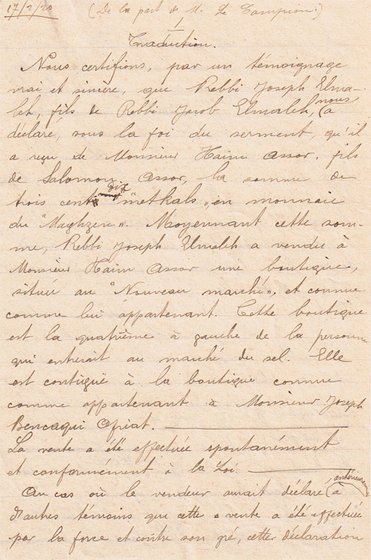 17/2/20 (De la part de M. Le Campion.)
Traduction.
Nous certifions, par un témoignage
vrai et sincère, que Rebbi Joseph Elma-
leh, fils de Rebbi Jacob Elmaleh, nous a
déclaré, sous la foi du serment, qu'il
a reçu de Monsieur Haim Assor, fils
de Salomon Assor, la somme de
trois cent dix methkals, en monnaie
du "Maghzen". Moyennant cette som-
me, Rebbi Joseph Elmaleh a vendu à
Monsieur Haim Assor une boutique,
située au "Nouveau marché", et connue
comme lui appartenant. Cette boutique
est la quatrième à gauche de la personne
qui entrerait au marché du sel. Elle
est contiguë à la boutique connue
comme appartenant à Monsieur Joseph
Bencaqui Ofriat.
La vente a été effectuée spontanément
et conformément à la Loi.
Au cas où le vendeur aurait déclaré à
d'autres témoins que cette vente a été effectuée
par la force et contre son gré, cette déclaration